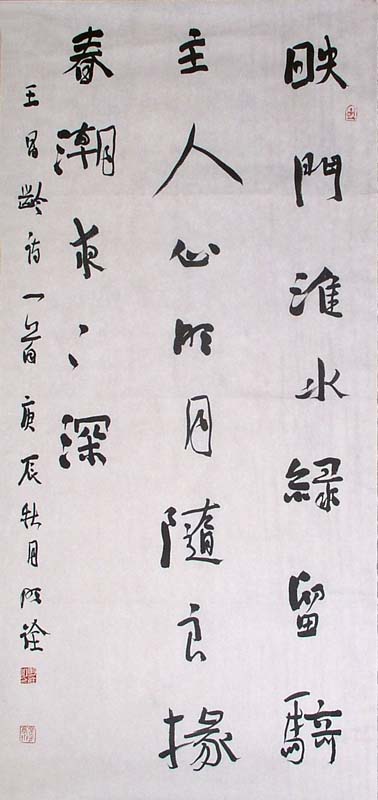 映門淮水綠留騎
主人心明月隨良掾
春潮夜〻深
王昌齡詩一首庚辰秋月明詮